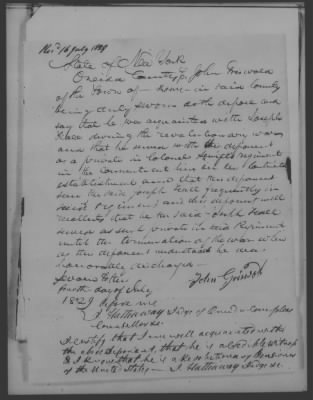 Rec.d 16 July 1829
State of New York
Oneida County John Griswold
of the town of Rome in said County
being duly sworn doth depose and
say that he was acquainted with Joseph
Hall during the revolutionary war
and that he served with the deponent
as a private in Colonel regiment
in the Connecticut line on the Continental
establishment and that this deponent
seen the said Joseph Hall frequently in
said regiment and this deponent well
recollects that he the said Joseph Hall
served as such private in said Regiment
until the termination of the war when
as this deponent understood he was
honorable discharged
Sworn to this John Griswold
fourth day of July
1829 before me
J. Hathaway Judge of Oneida Com pleas
Counsellor &c
I certify that I am well acquainted with
the above deponent, that he is a credible witness
& I know that he is a Revolutionary Pensioner
of the United States J. Hathaway Judge &c